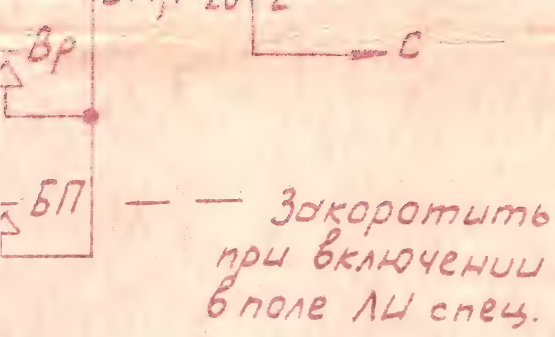 Вр
С
БП — — Закоротить
при включении
в поле ЛИ спец.